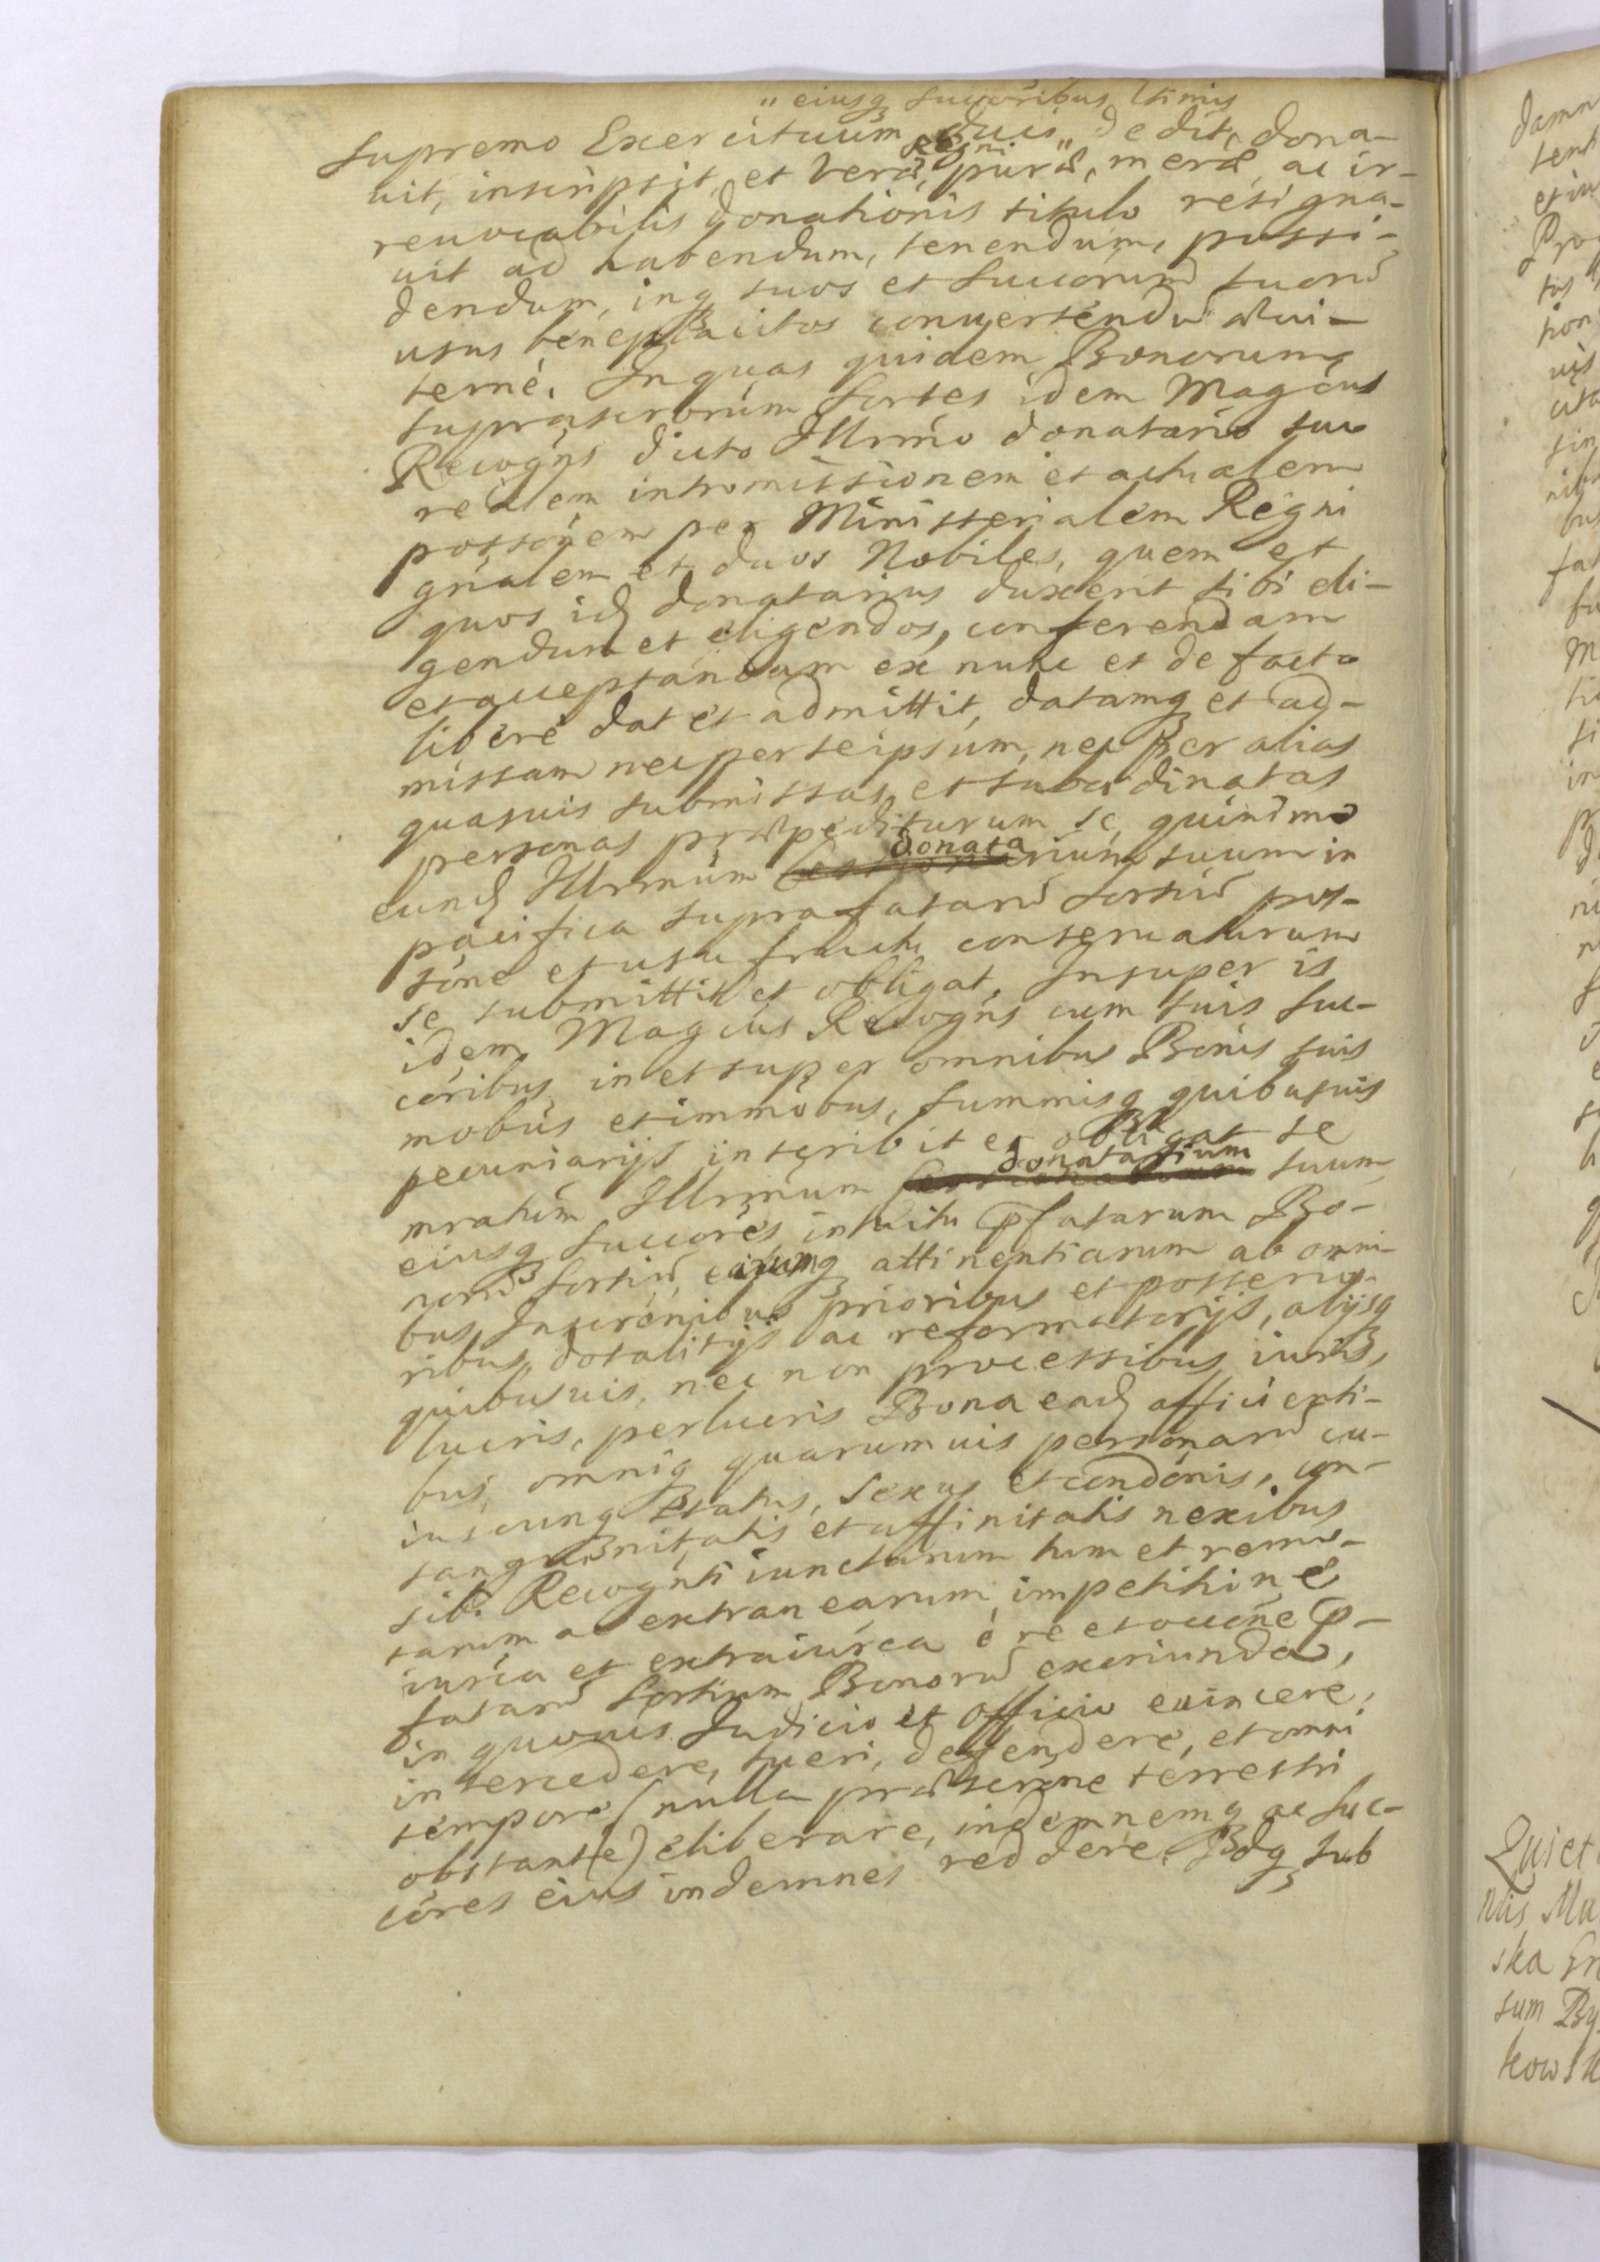 " eiusq succoribus ltimis
supremo Exercituum Regni ducis " dedit, dona-
uit, inscripsit, et veræ, puræ, meræ, ac ir-
reuocabilis donationis titulo resigna-
uit ad habendum, tenendum, possi-
dendum, inq suos et succorum suoru
usus beneplacitos conuertendu æui-
terne. In quas quidem Bonorum
suprascrorum sortes idem Magcus
Recogns dicto Illrmo donatario suo
realem intromissionem et actualem
possonem per Ministerialem Regni
gnalem et duos Nobiles, quem et
quos id donatarius duxerit sibi eli-
gendum et eligendos, conferendam
et acceptandam ex nunc et de facto
libere dat et admittit, datamq et ad-
missam nec per seipsum, nec per alias
quasuis submissas et subordinatas
personas præpediturum se, quinimo
eund Illrmum donatarium suum in
pacifica suprafataru sortiu pos-
sone et usu fructu conseruaturum
se submittit et obligat. Insuper is
idem Magcus Recogns cum suis suc-
coribus, in et super omnibus Bonis suis
mobus et immobus, summisq quibusuis
pecuniarijs inscribit et obligat se
mratum Illrmum donatarium suum,
eiusq succores intuitu pfatarum Bo-
noru sortiu, earumq attinentiarum ab omni-
bus Inscronibus prioribus et posterio-
ribus, dotalitijs ac reformatorijs, alijsq
quibusuis, nec non processibus iuris,
lucris, perlucris Bona ead afficienti-
bus, omniq quarumuis personaru cu-
iuscunq status, sexus et condonis, con-
sanguinitatis et affinitatis nexibus
sibi Recognti iunctarum tum et remo-
tarum ac extranearum impetitione
iurica et extraiurica è re et occone p-
fataru sortium Bonoru exoriunda,
in quouis Iudicio et Officio euincere,
intercedere, tueri, defendere, et omni
tempore (nulla præscrone terrestri
obstante) eliberare, indemnemq ac suc-
cores eius indemnes reddere. Idq sub
damn
tent
Prog
hon
uis
Quiet
Ndis Mu
ska Gn
sum By
kowsk